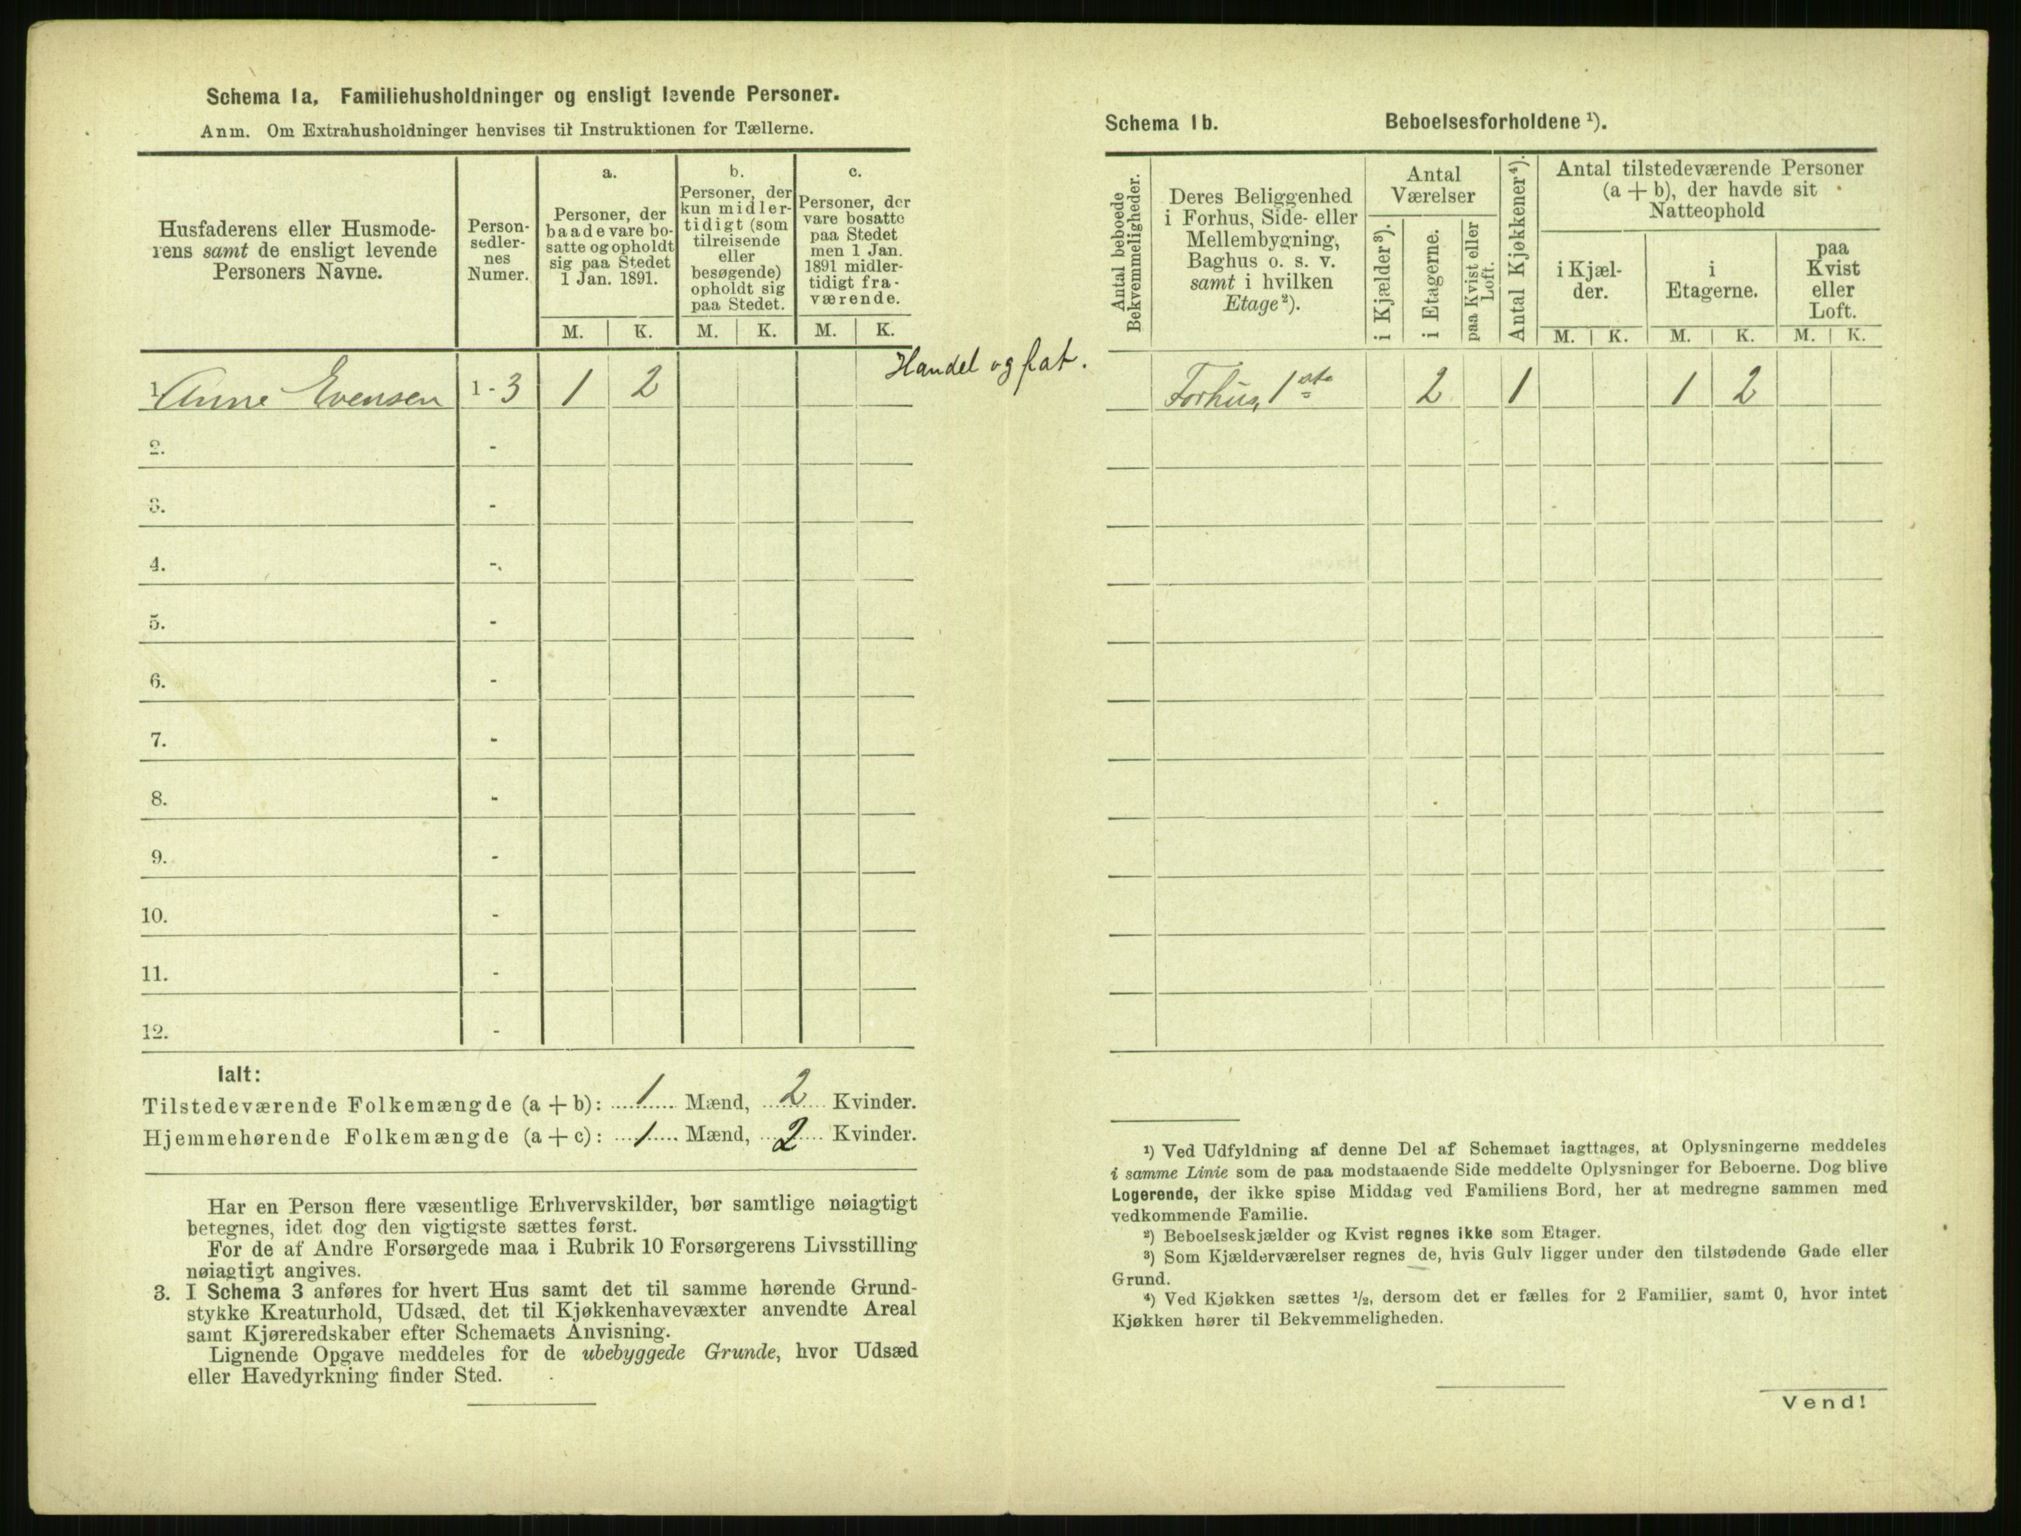 Schema 1a. Familiehusholdninger og ensligt levende Personer.
Anm. Om Extrahusholdninger henvises til Instruktionen for Tællerne.
Husfaderens eller Husmode-
rens samt de ensligt levende
Personers Navne.
Person-
sedler-
nes
Numer.
a.
Personer, der
baade vare bo-
satte og opholdt
sig paa Stedet
1 Jan. 1891.
b.
Personer, der
kun midler-
tidigt (som
tilreisende
eller
besøgende)
opholdt sig
paa Stedet.
c.
Personer, der
vare bosatte
paa Stedet
men 1 Jan.
1891 midler-
tidigt fra-
værende.
M. K. M. K. M. K.
1. Anne Evensen 1 - 3 1 2
Handel og
2. -
3. -
4. -
5. -
6. -
7. -
8. -
9. -
10. -
11. -
12. -
Ialt:
Tilstedeværende Folkemængde (a + b): 1 Mænd, 2 Kvinder.
Hjemmehørende Folkemængde (a + c): 1 Mænd, 2 Kvinder.
Har en Person flere væsentlige Erhvervskilder, bør samtlige nøiagtigt
betegnes, idet dog den vigtigste sættes først.
For de af Andre Forsørgede maa i Rubrik 10 Forsørgerens Livsstilling
nøiagtigt angives.
3. I Schema 3 anføres for hvert Hus samt det til samme hørende Grund-
stykke Kreaturhold, Udsæd, det til Kjøkkenhavevæxter anvendte Areal
samt Kjøreredskaber efter Schemaets Anvisning.
Lignende Opgave meddeles for de ubebyggede Grunde, hvor Udsæd
eller Havedyrkning finder Sted.
Schema 1b. Beboelsesforholdene ¹).
Antal beboede
Bekvemmeligheder.
Deres Beliggenhed
i Forhus, Side- eller
Mellembygning,
Baghus o. s. v.
samt i hvilken
Etage ²).
Antal
Værelser
i Kjælder ³).
i Etagerne.
paa Kvist eller
Loft.
Antal Kjøkkener ⁴).
Antal tilstedeværende Personer
(a + b), der havde sit
Natteophold
i Kjæl-
der.
i
Etagerne.
paa
Kvist
eller
Loft.
M. K. M. K. M. K.
Forhus, 1ste 2 1 1 2
¹) Ved Udfyldning af denne Del af Schemaet iagttages, at Oplysningerne meddeles
i samme Linie som de paa modstaaende Side meddelte Oplysninger for Beboerne. Dog blive
Logerende, der ikke spise Middag ved Familiens Bord, her at medregne sammen med
vedkommende Familie.
²) Beboelseskjælder og Kvist regnes ikke som Etager.
³) Som Kjælderværelser regnes de, hvis Gulv ligger under den tilstødende Gade eller
Grund.
⁴) Ved Kjøkken sættes ½, dersom det er fælles for 2 Familier, samt 0, hvor intet
Kjøkken hører til Bekvemmeligheden.
Vend!